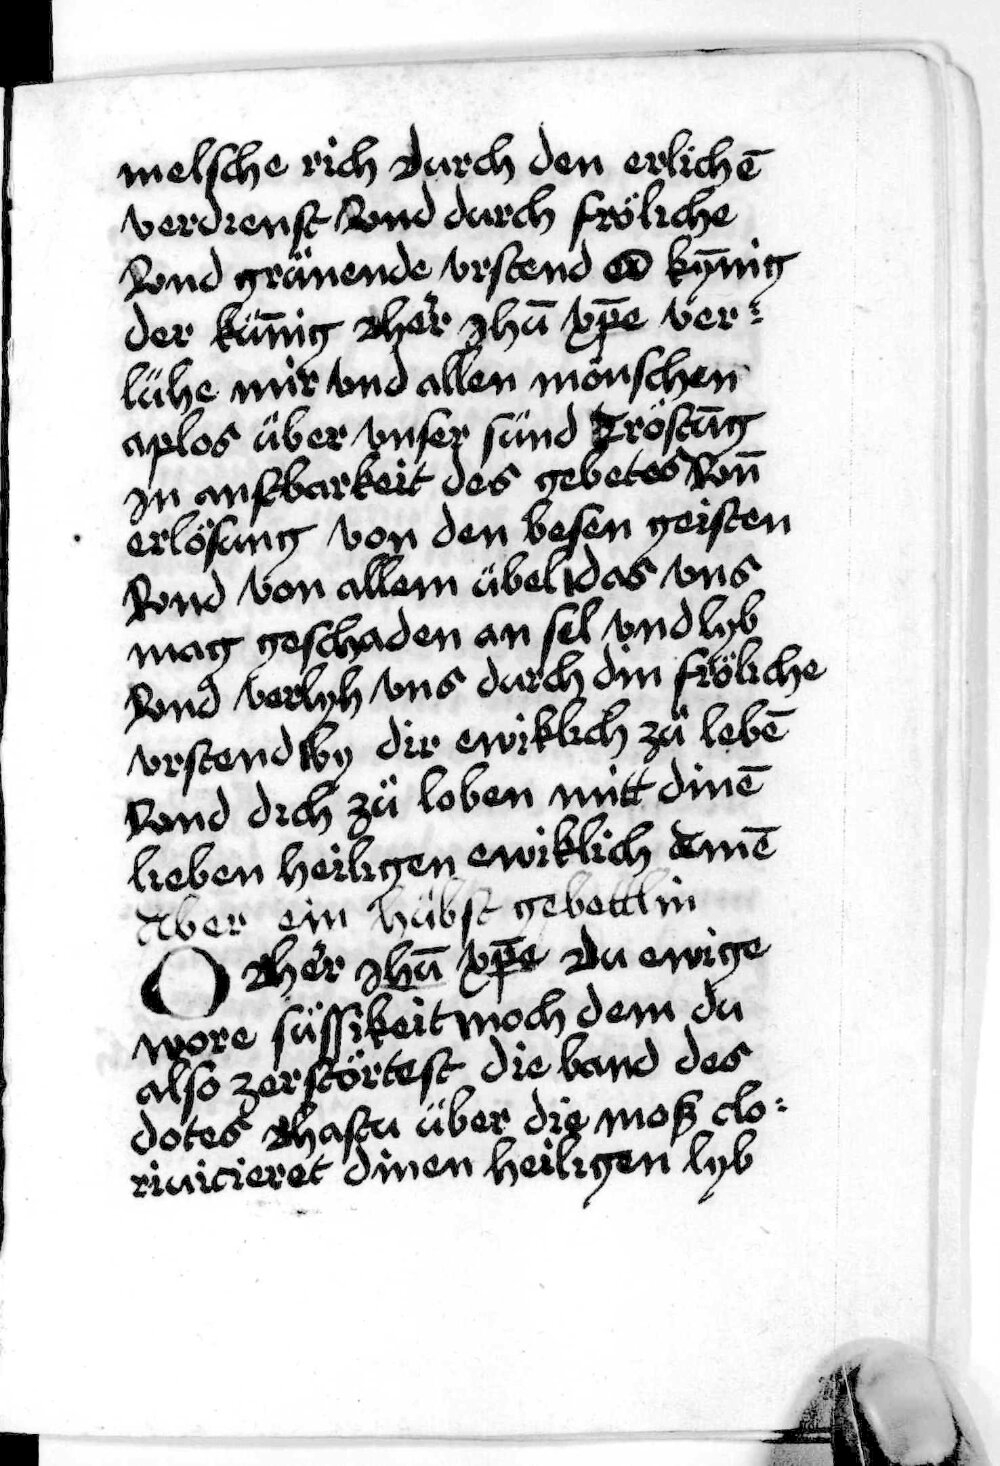 melsche rich durch den erlichē
verdienst vnd durch fröliche
vnd grünende vrstend O kȳnig
der kün̄ig her jhū xp̄e ver⸗
lühe mir vnd allen mönschen
aplos über vnser sünd tröstūg
in anstbarkeit des gebetes von̄
erlösung von den besen geisten
vnd von allem übel das vns
mag geschaden an sel vnd lyb
vnd verlyh vns durch din fröliche
vrstend by dir ewiklich zü lebē
vnd dich zü loben mitt dinē
lieben heiligen ewiklich amē
Aber ein hübst gebettlin
O her jhū xp̄e du ewige
wore süssikeit noch dem du
also zerstörtest die band des
dotes hastu über die moß clo⸗
riuicieret dinen heiligen lyb